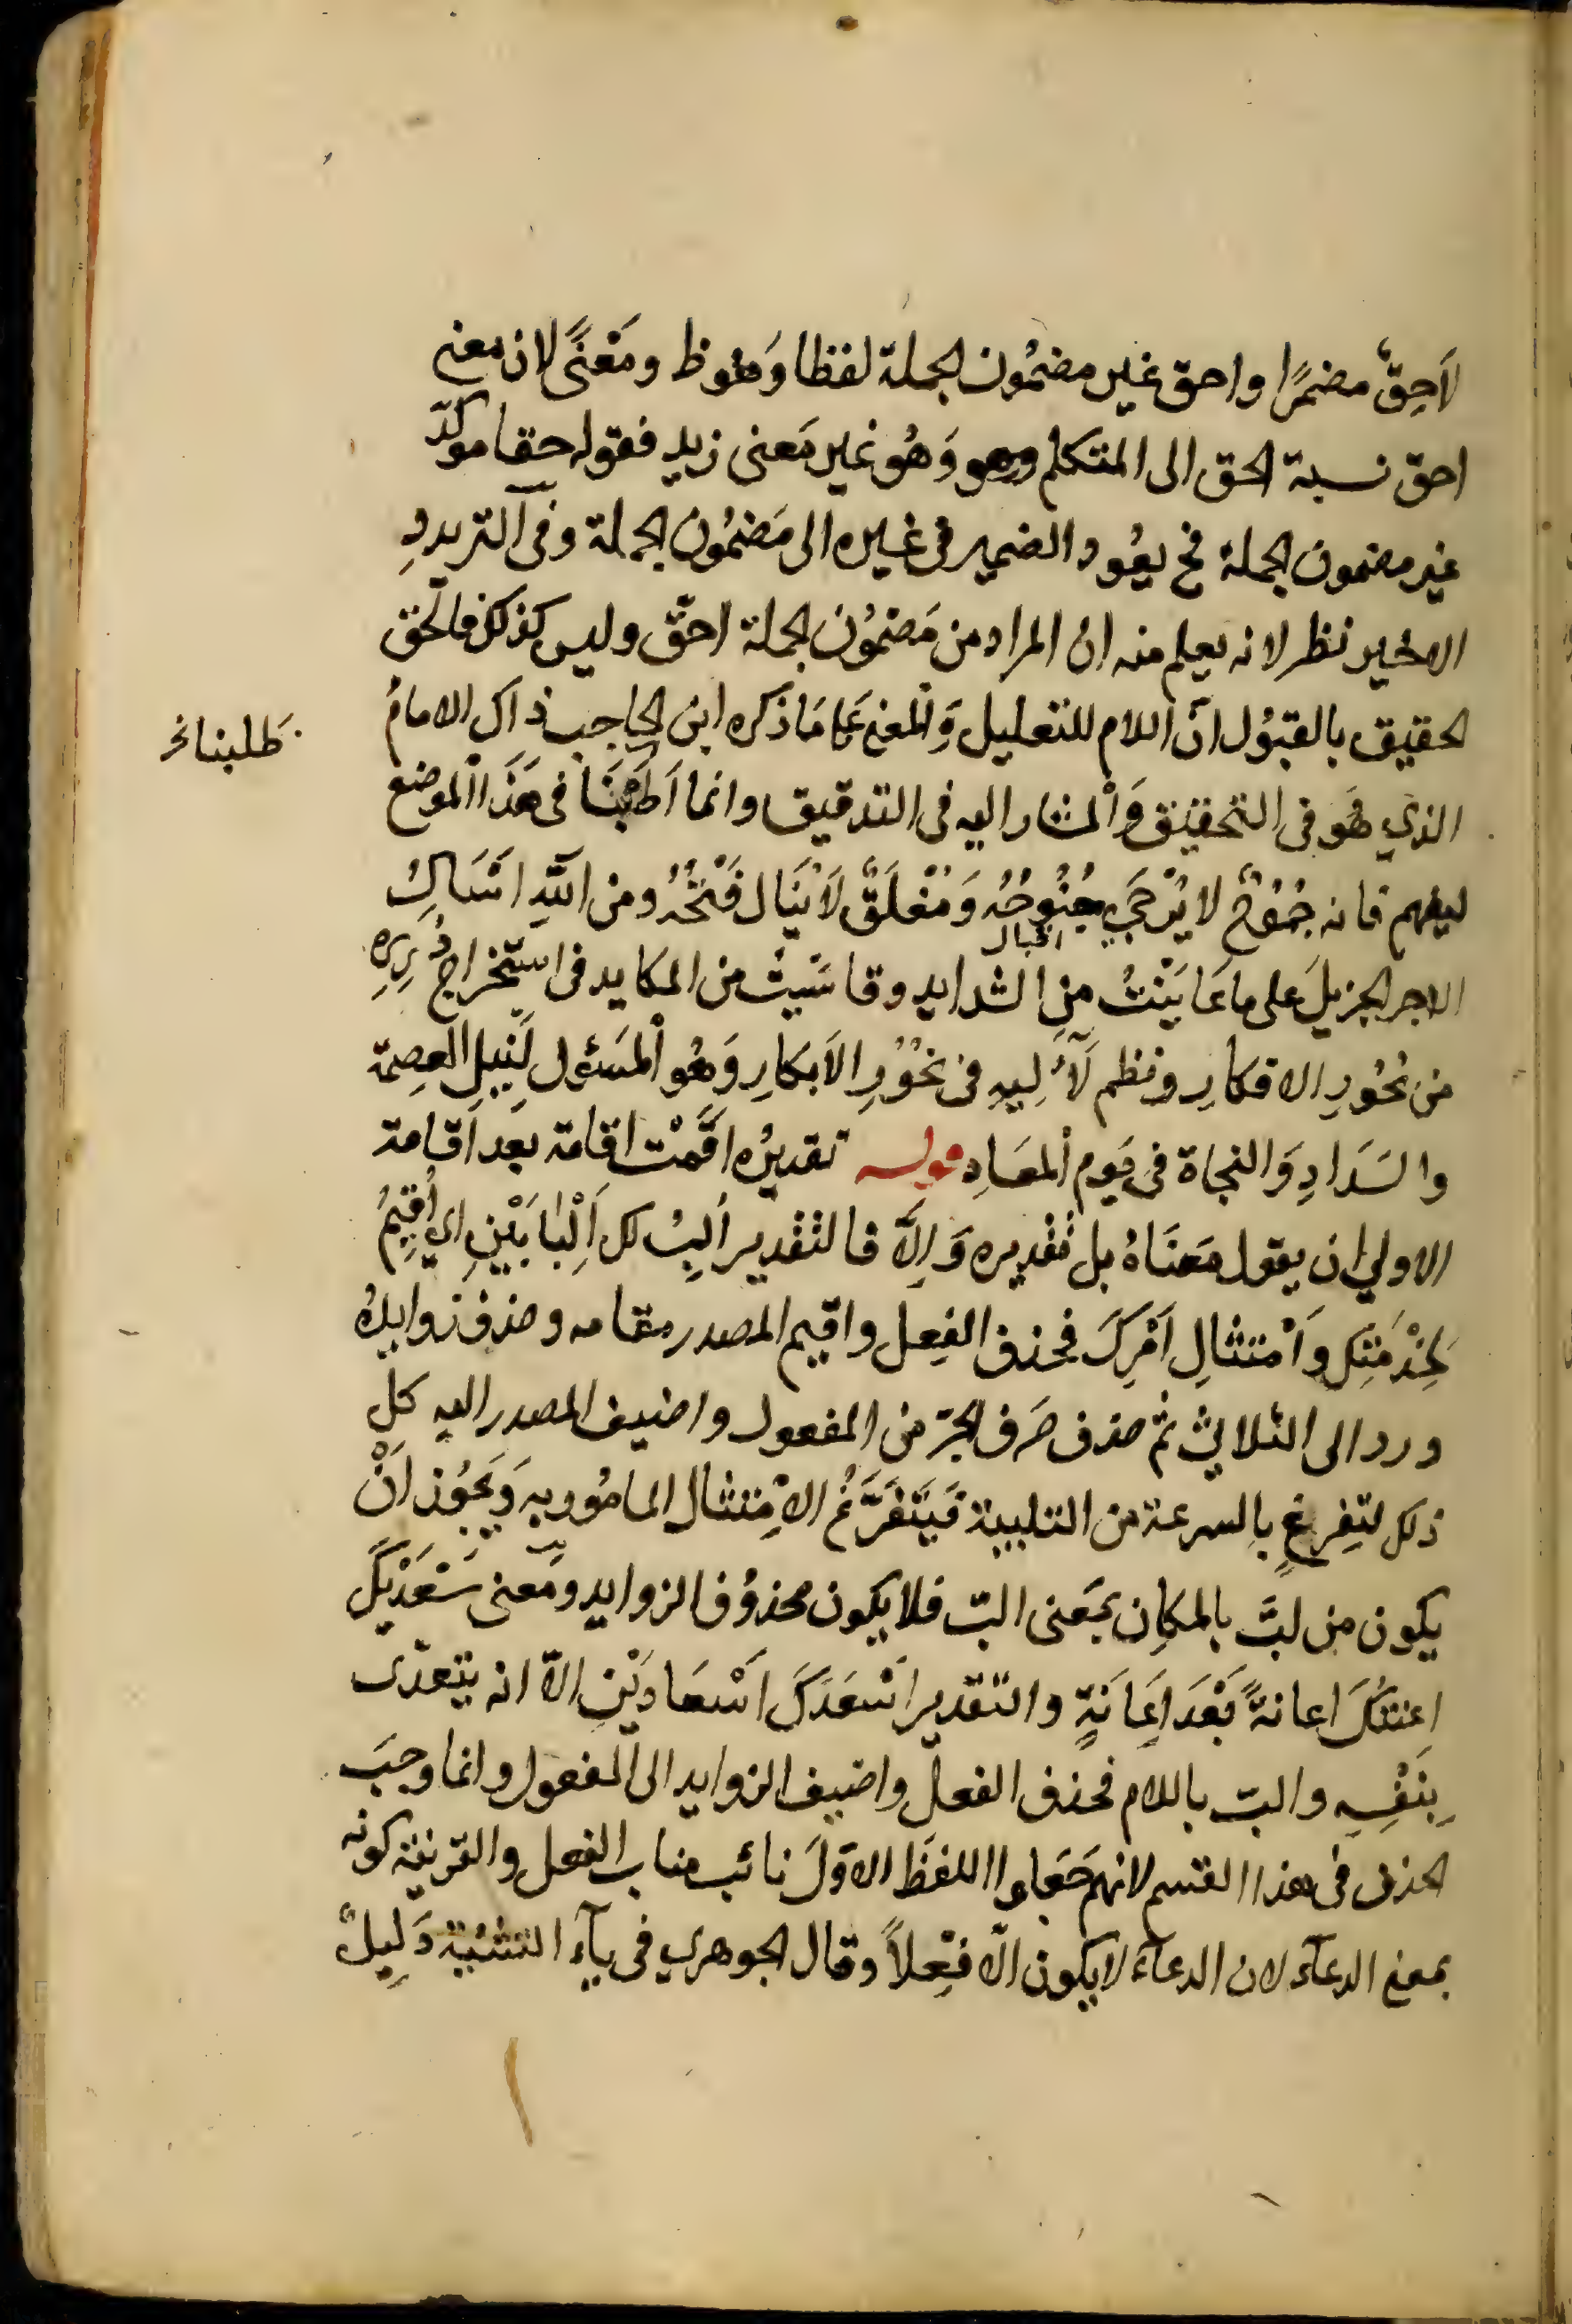 لاَحِقٌّ مضمرًا واحق غير مضمُون الجملة لفظا وَملفوظ ومَعْنًى لان معنى
احق نسبة الحق الى المتكلم وهو وَهُو غير مَعنى زيد فقوله حقا موكّد
غير مضمون الجملة فح يعُود الضمير فى غيره الى مَضمُون الجملة وفى الترديدِ
الاخير نظر لانه يعلم منه ان المراد من مَضمُون الجملة احقّ وليس كذلك فالحق
الحقيق بالقبُول انّ اللام للتعليل وَالمعنى عَلى مَا ذكره ابن الحاجب ذاك الامامُ
الذي هُو فى التحقيق وَالمشار اليه فى التدقيق وانما اَطنبنَا فى هَذَا الموضع
طلبنا نخ
ليفهم فانه جمُوْحٌ لا يُرْجَى جُنُوحُهُ وَمُغْلَقٌ لاَ يُنَال فَتْحُهُ ومن اللهِ اَسَالُ
اقبال
الاجر الجزيلَ على ما عَايَنْتُ مِن الشدايد وقاسَيتُ من المكايد فى استخراج دُررِهِ
من بُحُورِ الافكارِ ونظم لآلِيهِ فى نحُوْرِ الاَبكارِ وَهُو المَسَؤل لِنَيلِ العِصمة
والسَدَادِ وَالنجاة فى يَوم المعَادِ قوله تقديرُه اقمْت اِقامة بعد اقامة
الاولي ان يقول مَعنَاهُ بل تقْديره وَاِلاَّ فالتقدير اُلِبُّ لك اِلْبَابَيْنِ اي اُقِيمُ
لخِدْمَتِك وامْتثالِ اَمْرِكَ فحذف الفِعل واقيم المصدر مقامه وحذف زوايدُه
ورد الى الثلاثى ثم حذف حَرف الجرّ من المفعول واضيف المصدر اليه كل
ذلك لتفرغٍ بِالسرعة من التلبية فَيَتَفَرَّغُ الاِمْتثال المامُور به وَيَجُوز اَنْ
يكون من لبَّ بالمكان بمَعنى البّ فلا يكون محذوُف الزوايد ومَعنى سَعْدَيْكَ
اعنتكَ اعانةً بَعْدَ اِعَانَةٍ والتقدير اَسْعَدَكَ اسْعَادَيْنِ الاّ انه يتعدّى
بِنَفْسِهِ والبّ باللام فحذف الفعل واضيف الزوايد الى المفعول وانما وجبَ
الحذف فى هذا القسم لانهم جَعَلوا اللفظَ الاوّلَ نائب مناب الفعل والقرينة كونه
بمعنى الدعآء لان الدعآءَ لا يكون الاّ فِعْلاً وقال الجوهري فى يآءِ التثنية دَلِيلٌ